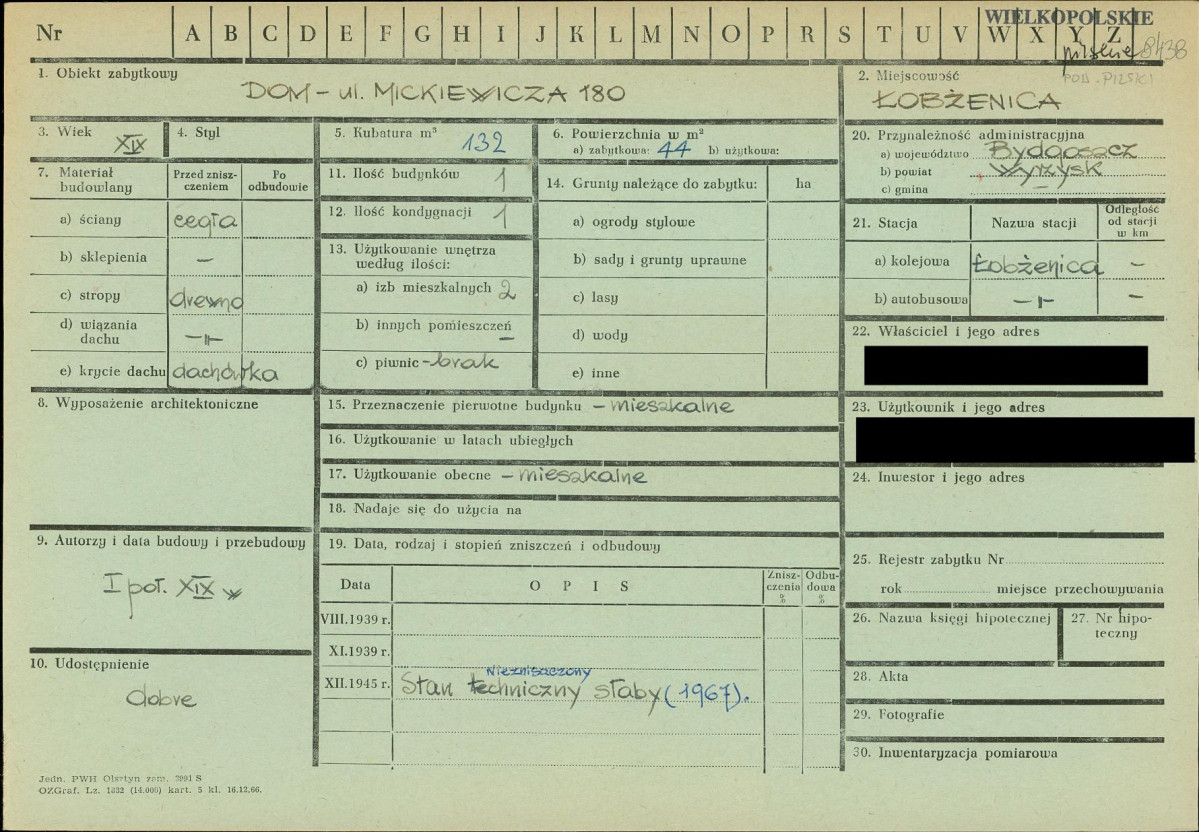 Nr A B C D E F G H I J K L M N O P R S T U V W X Y Z
WIELKOPOLSKIE
pilskie 8438
POD. PILSKI
1. Obiekt zabytkowy
DOM – ul. MICKIEWICZA 180
2. Miejscowość
ŁOBŻENICA
3. Wiek
XIX
4. Styl
5. Kubatura m³
132
6. Powierzchnia w m²
a) zabytkowa: 44 b) użytkowa:
20. Przynależność administracyjna
a) województwo Bydgoszcz
b) powiat Wyrzysk
c) gmina –
7. Materiał budowlany
Przed znisz-
czeniem
Po
odbudowie
a) ściany cegła
b) sklepienia –
c) stropy drewno
d) wiązania
dachu –"–
e) krycie dachu dachówka
11. Ilość budynków 1
12. Ilość kondygnacji 1
13. Użytkowanie wnętrza
według ilości:
a) izb mieszkalnych 2
b) innych pomieszczeń –
c) piwnic – brak
14. Grunty należące do zabytku: ha
a) ogrody stylowe
b) sady i grunty uprawne
c) lasy
d) wody
e) inne
21. Stacja Nazwa stacji
Odległość
od stacji
w km
a) kolejowa Łobżenica –
b) autobusowa –"– –
22. Właściciel i jego adres
23. Użytkownik i jego adres
24. Inwestor i jego adres
8. Wyposażenie architektoniczne
15. Przeznaczenie pierwotne budynku – mieszkalne
16. Użytkowanie w latach ubiegłych
17. Użytkowanie obecne – mieszkalne
18. Nadaje się do użycia na
9. Autorzy i data budowy i przebudowy
I poł. XIX w
10. Udostępnienie
dobre
19. Data, rodzaj i stopień zniszczeń i odbudowy
Data O P I S
Znisz-
czenia
%
Odbu-
dowa
%
VIII.1939 r.
XI.1939 r.
Niezniszczony
XII.1945 r. Stan techniczny słaby (1967).
25. Rejestr zabytku Nr
rok miejsce przechowywania
26. Nazwa księgi hipotecznej
27. Nr hipo-
teczny
28. Akta
29. Fotografie
30. Inwentaryzacja pomiarowa
Jedn. PWH Olsztyn zam. 2991 S
OZGraf. Lz. 1332 (14.000) kart. 5 kl. 16.12.66.